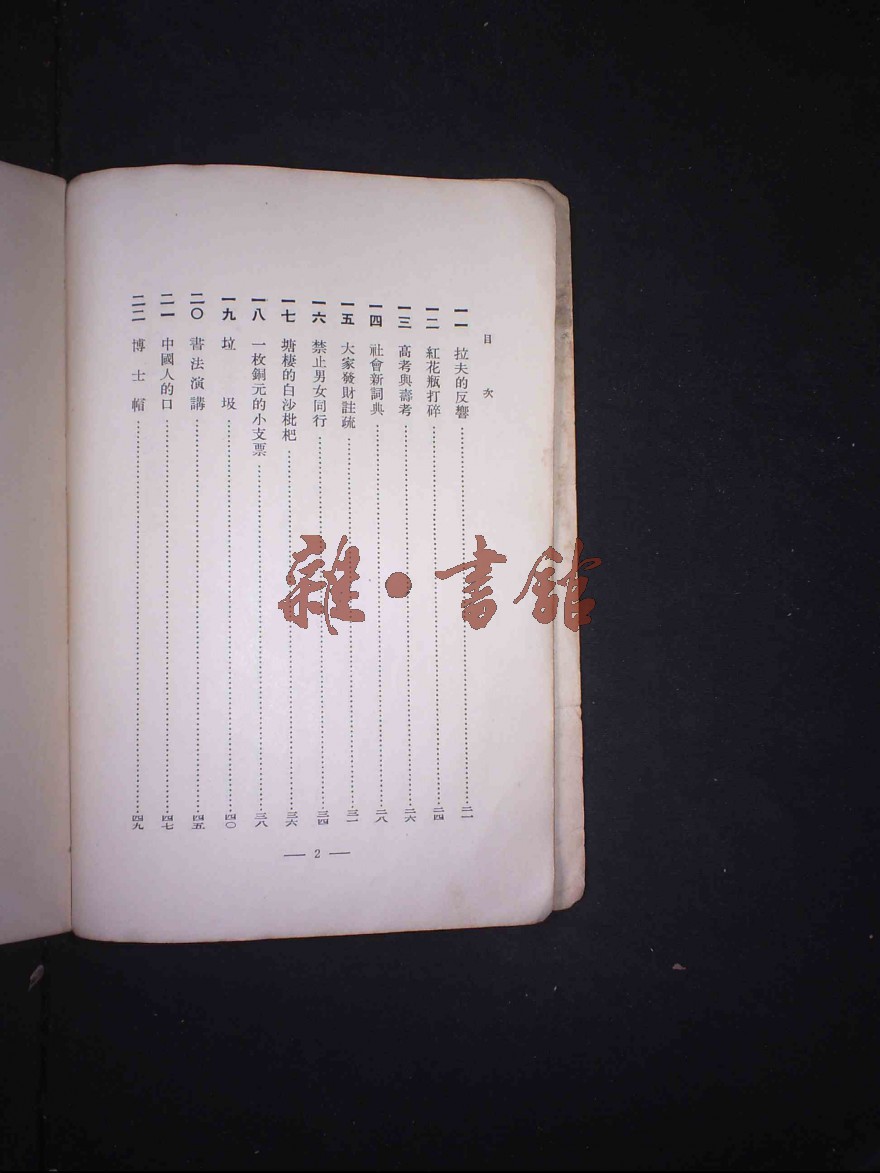 目次
一一 拉夫的反響……二一
一二 紅花瓶打碎……二四
一三 高考與壽考……二六
一四 社會新詞典……二八
一五 大家發財註疏……三一
一六 禁止男女同行……三四
一七 塘棲的白沙枇杷……三六
一八 一枚銅元的小支票……三八
一九 垃圾……四〇
二〇 書法演講……四五
二一 中國人的口……四七
二二 博士帽……四九
— 2 —
雜·書館